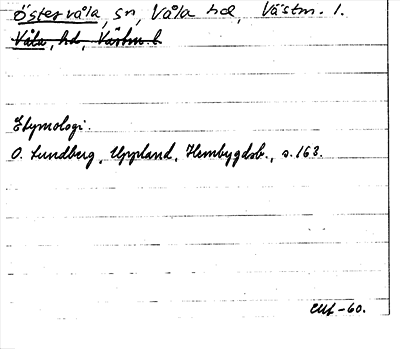 Östervåla, sn, Våla hd, Västm. l.
Våla, hd, Västm. l.
Etymologi.
O. Lundberg, Uppland, Hembygdsb., s. 163.
-60.